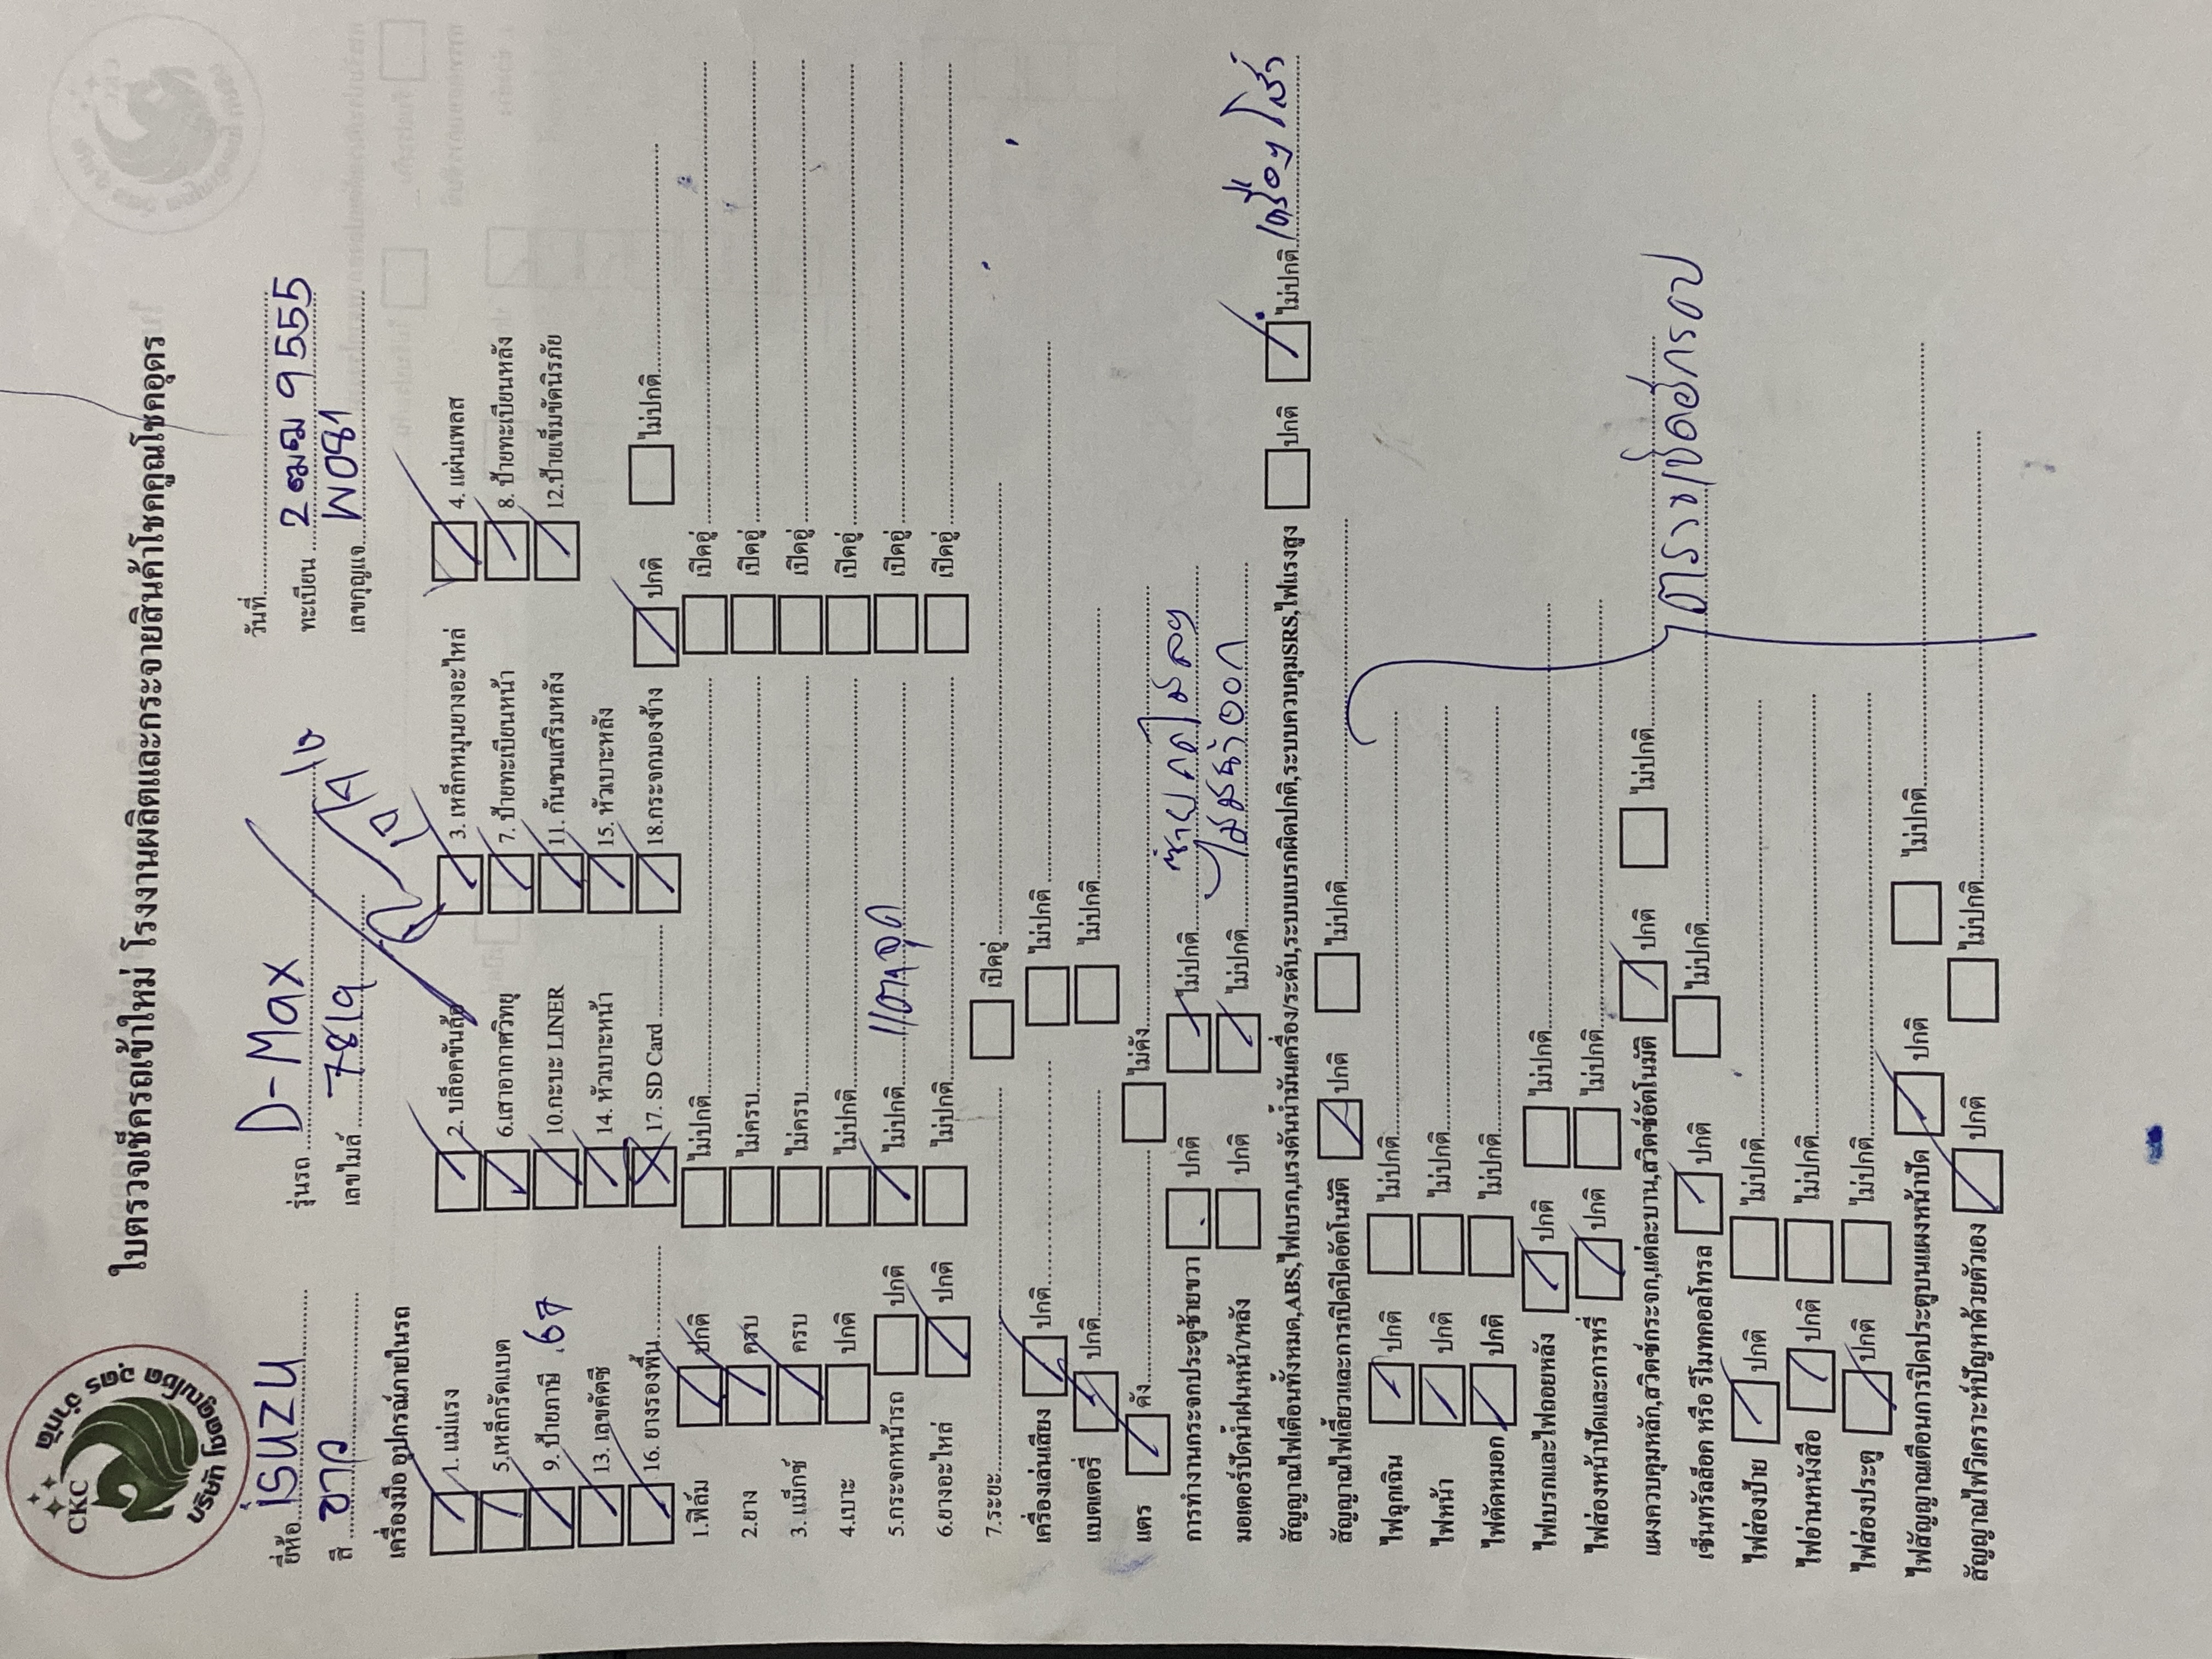 CKC
บริษัท โชคคูณโชค อุดร จำกัด
ใบตรวจเช็ครถเข้าใหม่ โรงงานผลิตและกระจายสินค้าโชคคูณโชคอุดร
ยี่ห้อ ISUZU รุ่นรถ D-Max วันที่
สี ขาว เลขไมล์ ทะเบียน 2ฒฌ 9555
เลขกุญแจ W081
เครื่องมือ อุปกรณ์ภายในรถ
1. แม่แรง 2. บล็อคขันล้อ 3. เหล็กหมุนยางอะไหล่ 4. แผ่นพลส
5.เหล็กรัดแบต 6.เสาอากาศวิทยุ 7. ป้ายทะเบียนหน้า 8. ป้ายทะเบียนหลัง
9. ป้ายภาษี .67 10.กะบะ LINER 11. กันชนเสริมหลัง 12.ป้ายเข็มขัดนิรภัย
13. เลขคัตซี 14. หัวเบาะหน้า 15. หัวเบาะหลัง
16. ยางรองพื้น 17. SD Card 18.กระจกมองข้าง ปกติ ไม่ปกติ
1.ฟิล์ม ปกติ ไม่ปกติ เปิดอู่
2.ยาง ครบ ไม่ครบ เปิดอู่
3. แม็กซ์ ครบ ไม่ครบ เปิดอู่
4.เบาะ ปกติ ไม่ปกติ เปิดอู่
5.กระจกหน้ารถ ปกติ ไม่ปกติ แตกจุด เปิดอู่
6.ยางอะไหล่ ปกติ ไม่ปกติ เปิดอู่
7.ระยะ เปิดอู่
เครื่องเล่นเสียง ปกติ ไม่ปกติ
แบตเตอรี่ ปกติ ไม่ปกติ
แตร ดัง ไม่ดัง
การทำงานกระจกประตูซ้ายขวา ปกติ ไม่ปกติ ซ้ายกดไม่ลง
มอเตอร์ปัดน้ำฝนหน้า/หลัง ปกติ ไม่ปกติ ไม่มีน้ำออก
สัญญาณไฟเตือนทั้งหมด,ABS,ไฟเบรก,แรงดันน้ำมันเครื่อง/ระดับ,ระบบเบรกผิดปกติ,ระบบควบคุมSRS,ไฟแรงสูง ปกติ ไม่ปกติ เครื่องโชว์
สัญญาณไฟเลี้ยวและการเปิดปิดอัตโนมัติ ปกติ ไม่ปกติ
ไฟฉุกเฉิน ปกติ ไม่ปกติ
ไฟหน้า ปกติ ไม่ปกติ
ไฟตัดหมอก ปกติ ไม่ปกติ
ไฟเบรกและไฟถอยหลัง ปกติ ไม่ปกติ
ไฟส่องหน้าปัดและการหรี่ ปกติ ไม่ปกติ
แผงควบคุมหลัก,สวิตซ์กระจก,แต่ละบาน,สวิตซ์อัตโนมัติ ปกติ ไม่ปกติ
เซ็นทรัลล็อค หรือ รีโมทคอลโทรล ปกติ ไม่ปกติ
ไฟส่องป้าย ปกติ ไม่ปกติ
ไฟอ่านหนังสือ ปกติ ไม่ปกติ
ไฟส่องประตู ปกติ ไม่ปกติ
ไฟสัญญาณเตือนการปิดประตูบนแผงหน้าปัด ปกติ ไม่ปกติ
สัญญาณไฟวิเคราะห์ปัญหาด้วยตัวเอง ปกติ ไม่ปกติ